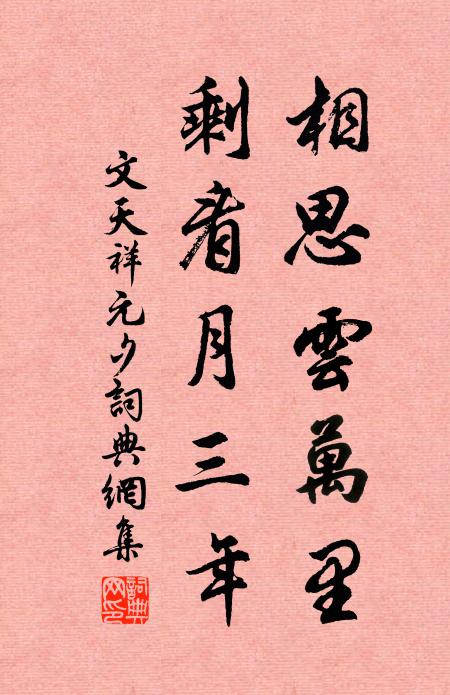 相思雲萬里
剩看月三年
文天祥元夕詞典網集
詞典網印